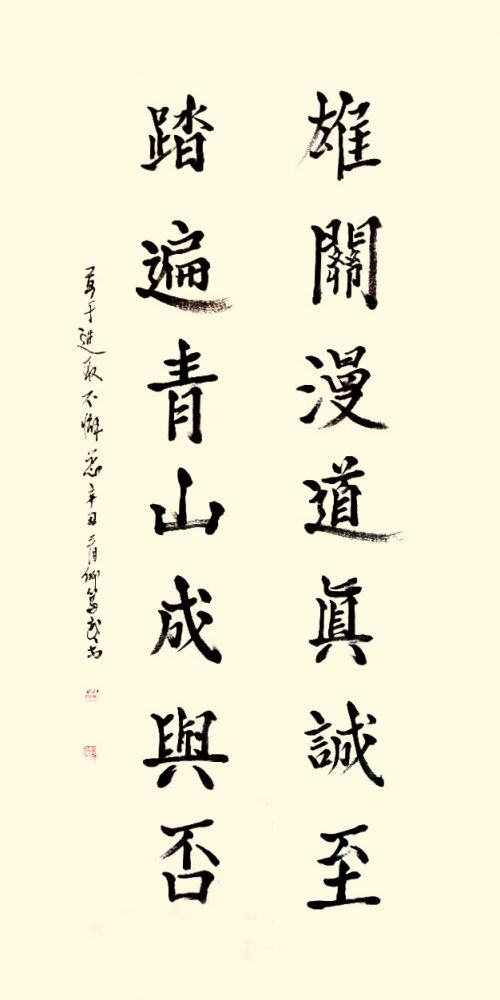 雄關漫道眞誠至
踏遍青山成與否
于進取不懈 辛丑